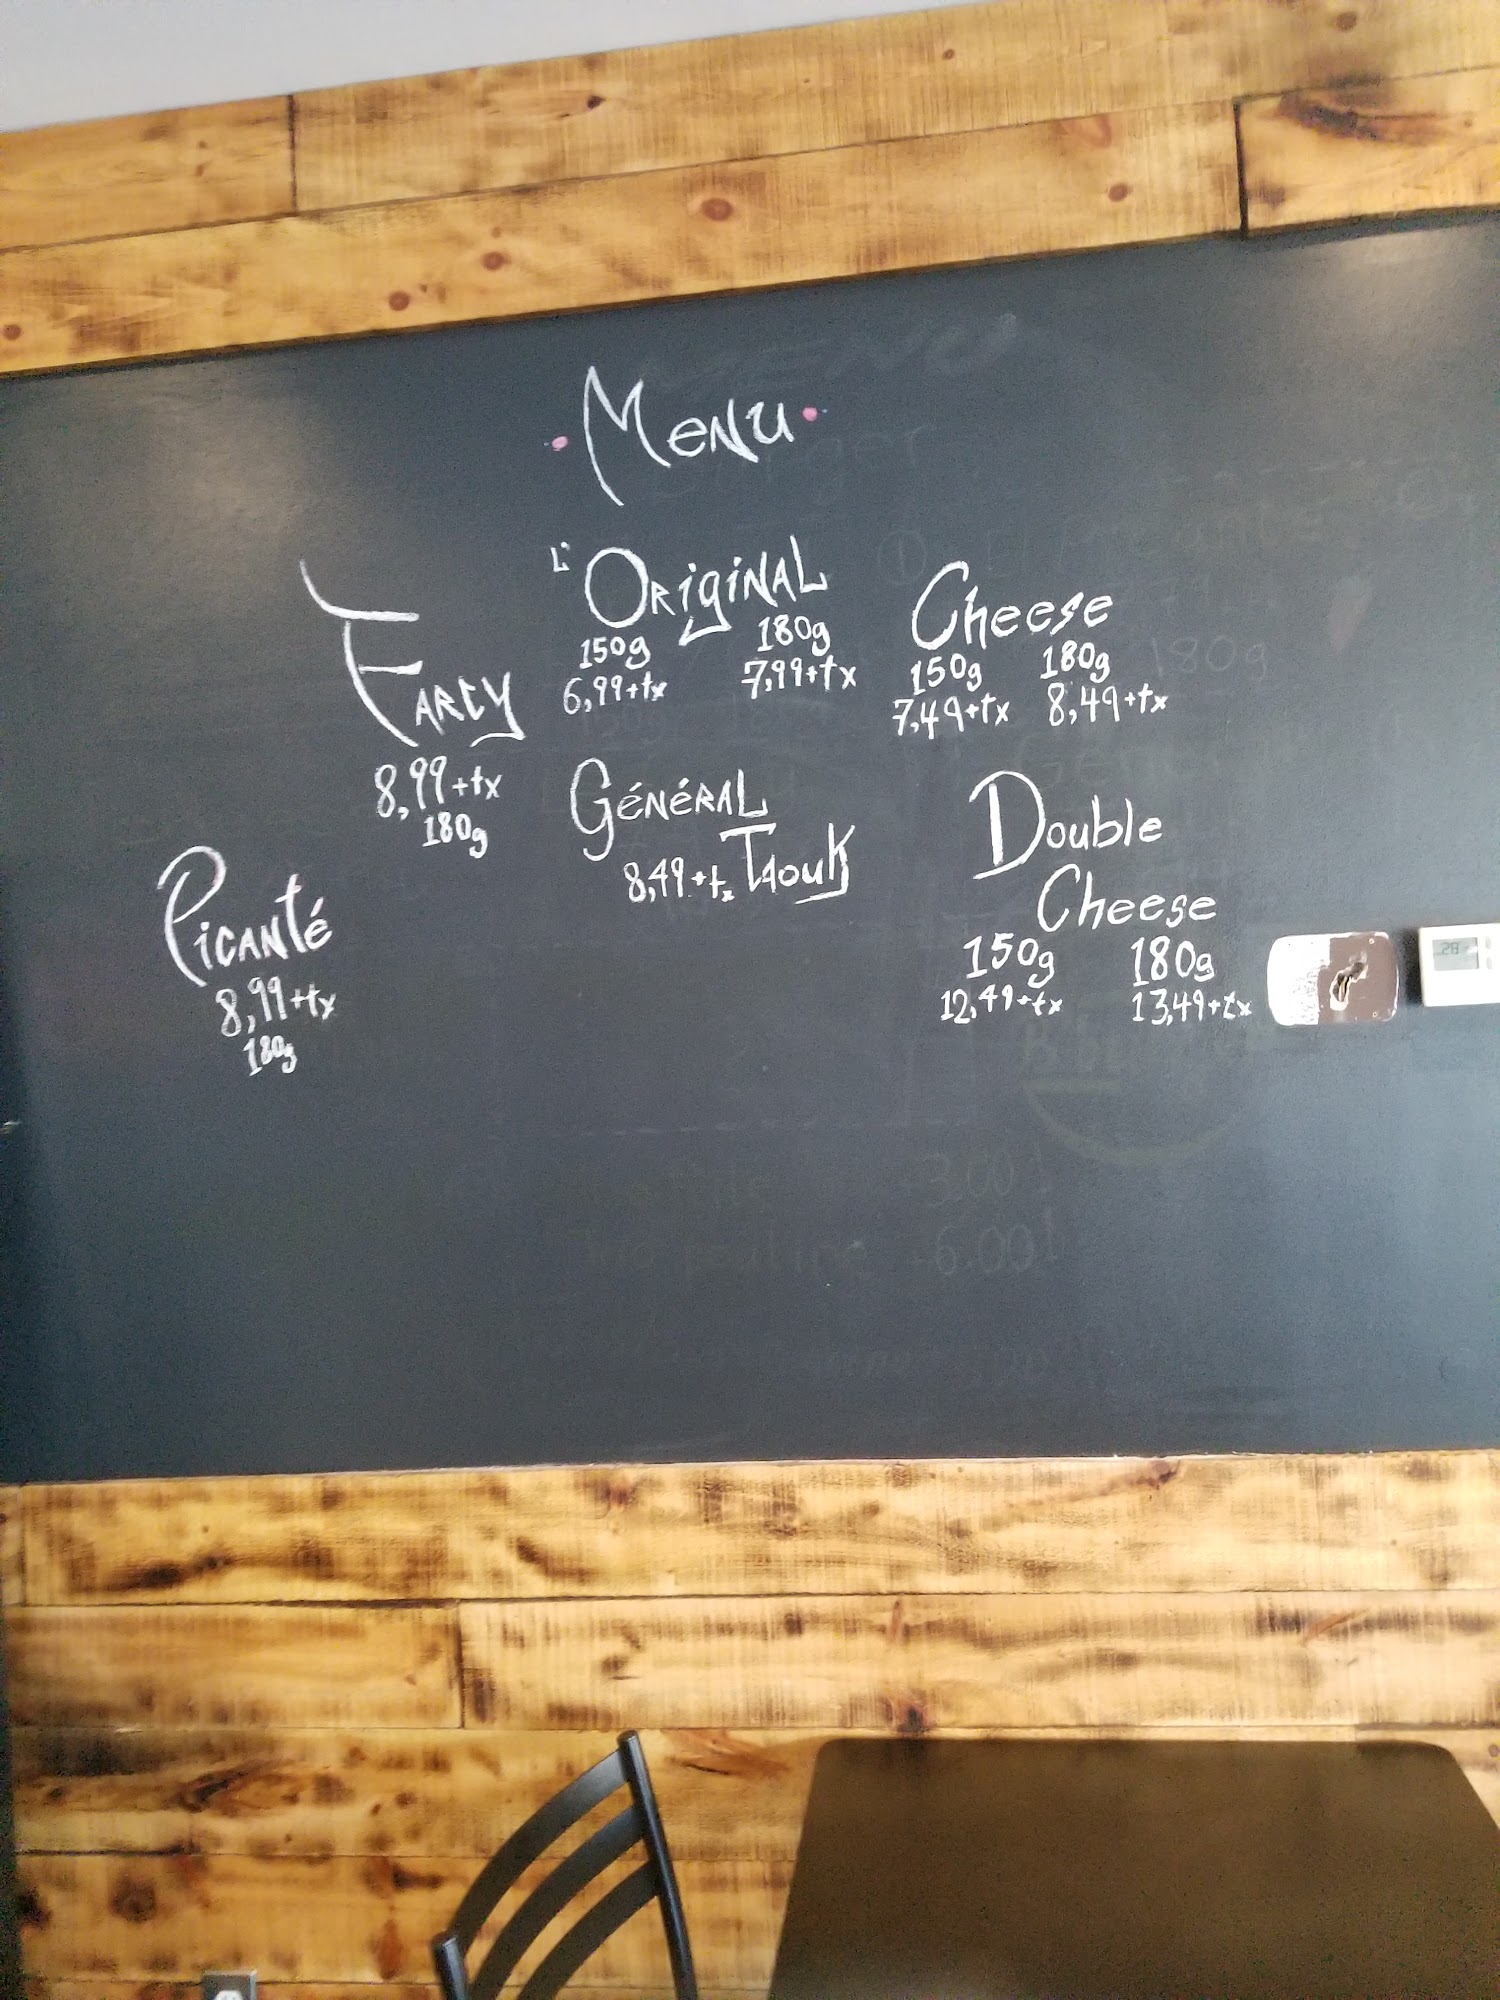 Menu
L'Original
150g 180g
6,99+tx 7,99+tx
Cheese
150g 180g
7,49+tx 8,49+tx
Farcy
8,99+tx
180g
Général
8,49+tx Taouk
Double
Cheese
150g 180g
12,49+tx 13,49+tx
Picanté
8,99+tx
180g
180g
3.00
6.00